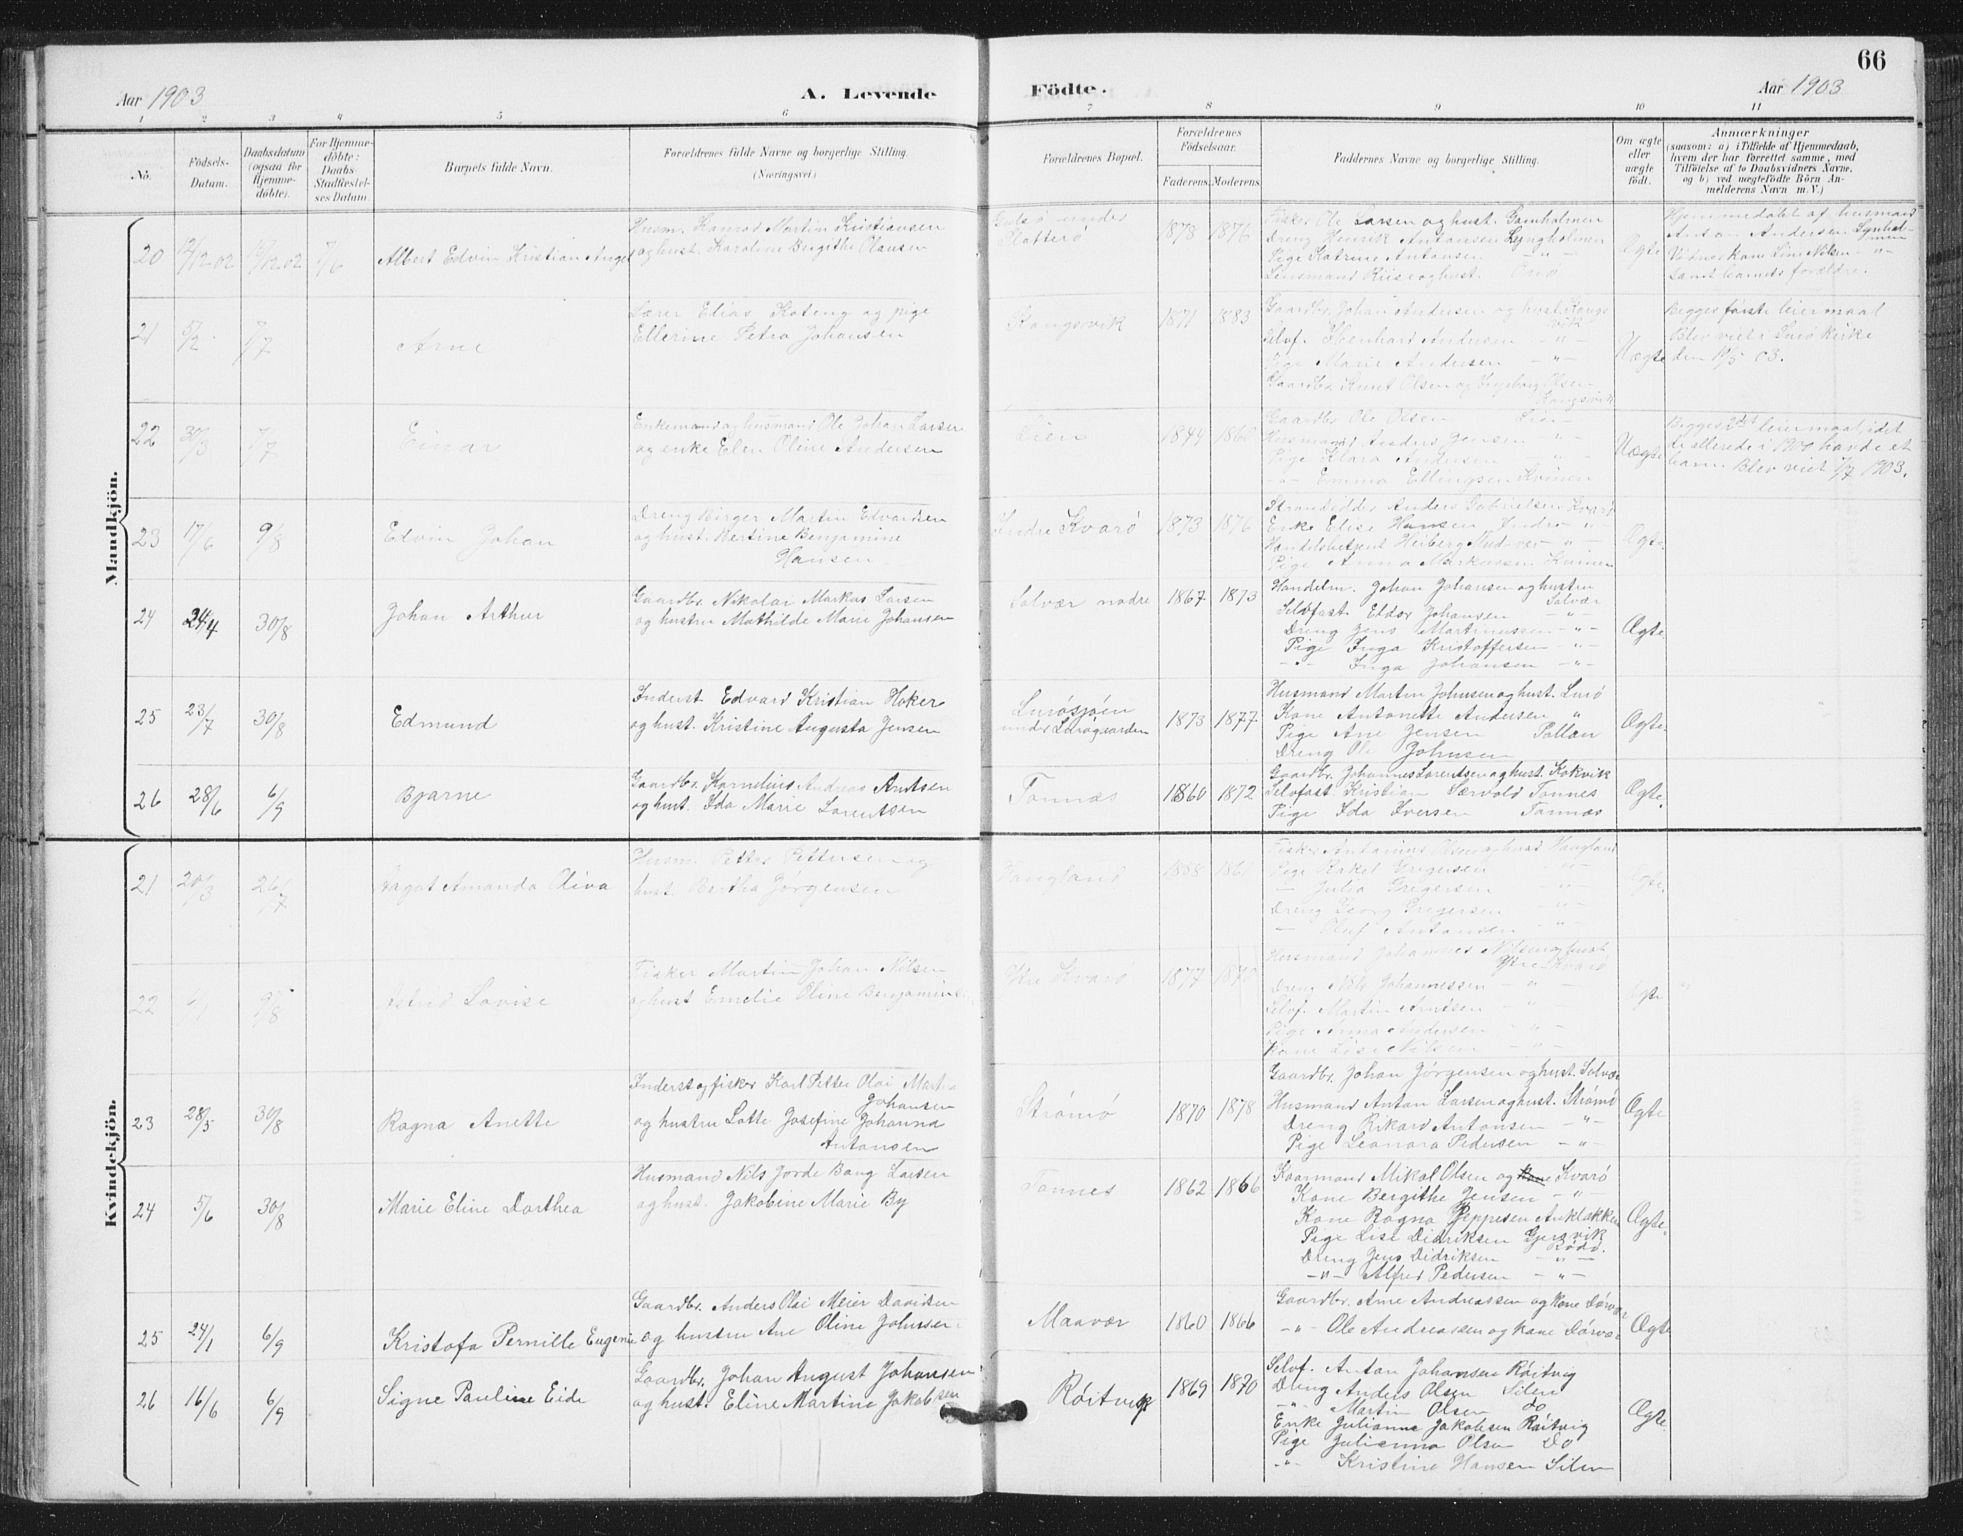 66
Aar 1903
A. Levende
Födte.
Aar 1903
1 2 3 4 5 6 7 8 9 10 11
No.
Födsels-
Datum.
Daabsdatum
(ogsaa for
Hjemme-
döbte).
For Hjemme-
döbte:
Daabs-
Stadfæstel-
ses Datum
Barnets fulde Navn.
Forældrenes fulde Navne og borgerlige Stilling.
(Næringsvei)
Forældrenes Bopæl.
Forældrenes
Födselsaar.
Faderens. Moderens.
Faddernes Navne og borgerlige Stilling.
Om ægte
eller
uægte
födt.
Anmærkninger
(saasom: a) i Tilfælde af Hjemmedaab,
hvem der har forrettet samme, med
Tilföielse af to Daabsvidners Navne,
og b) ved uægtefödte Börn An-
melderens Navn m. V.)
Mandkjön.
20 12/12 02 7/6 Albert Edvin Kristian Angel
Husm. Konrad Martin Kristiansen
og hust. Karoline Birgithe Olausen
under
Slotterö
1878 1876
Fisker Ole Larsen og hust. Gamholmen
Dreng Henrik Antonsen Lyngholmen
Pige Katrine Antonsen -"-
Lensmand Riise og hust. Onö
Ægte
Hjemmedöbt af husmand
Anton Andersen
Vidner kone Line Nilsen -"-
samt barnets forældre.
21 5/2 7/7 Arne
Lærer Elias Kateng og pige
Ellerine Petra Johansen
Kongsvik
1871 1883
Gaardbr. Johan Andersen og hust. Kongs
vik
Selvf. Ebenhard Andersen -"-
Pige Marie Andersen -"-
Gaardbr. Knut Olsen og Ingeborg Olsen
Kongsvik
Uægte
Begges förste leiermaal
Blev viet i Lurö kirke
den 10/5 03.
22 30/3 7/7 Einar
Enkemand og husmand Ole Johan Larsen
og enke Elen Oline Andersen
Lien
1849 1860
Gaardbr. Ole Olsen Lien
Husmand Anders Jensen -"-
Pige Klara Andersen -"-
-"- Emma Ellingsen Kvinen
Uægte
Begges leiermaal, idet
de allerede i 1900 havde et
barn. Blev viet 7/7 1903.
23 17/6 9/8 Edvin Johan
Dreng Birger Martin Edvardsen
og hust. Bertine Benjamine
Hansen
Indre Kvarö
1873 1876
Strandsidder Anders Gabrielsen Kvarö
Enke Elise Hansen Indre -"-
Handelsbetjent Heiberg -"-
Pige Anna Markussen Kvinen
Ægte.
24 24/4 30/8 Johan Arthur
Gaardbr. Nikolai Markus Larsen
og hustru Mathilde Marie Johansen
Solvær nodre
1867 1873
Handelm. Johan Johansen og hustru
Solvær
Selvfost. Eldor Johansen -"-
Dreng Jens Martinussen -"-
Pige Inga Kristoffersen -"-
-"- Inga Johansen -"-
Ægte.
25 23/7 30/8 Edmund
Inderst Edvard Kristian Hoker
og hust. Kristine Augusta Jensen
Lurösjöen
under Lurögaarden
1873 1877
Husmand Martin Johnsen og hust. Lurö
Kone Antonette Andersen "
Pige Ane Jensen Pollan
Dreng Ole Johnsen
Ægte.
26 28/6 6/9 Bjarne
Gaardbr. Kornelius Andreas Arntsen
og hust. Ida Marie Lorentsen
Tonnæs
1860 1872
Gaardbr. Johannes Lorentsen og hust. Kokvik
Selvfost. Kristian Særvold Tonnes
Pige Ida Iversen Tonnæs
Ægte.
Kvindekjön.
21 20/3 26/7 Dagot Amanda Oliva
Husm. Petter Pettersen og
hust. Bertha Jörgensen
Haugland
1858 1861
Fisker Antonius Olsen og hust. Haugland
Pige Rakel Gregersen -"-
- Julia Gregersen -"-
Dreng Georg Gregersen -"-
- Oluf Antonsen -"-
Ægte.
22 9/8 Astrid Lovise
Fisker Martin Johan Nilsen
og hust Emelie Oline Benjaminsen
Ytre Kvarö
1877 1870
Husmand Johannes Nilsen og hust
Ytre Kvarö
Dreng Nils Johannessen -"-
Selvf. Martin Arntsen -"-
Pige Anna Andersen -"-
Kone Lise Nilsen -"-
Ægte
23 28/5 30/8 Ragna Anette
Inderst og fisker Karl Petter Olai Martin
Johansen
og hustru Lotte Josefine Johanna
Antonsen
Strömö
1870 1878
Gaardbr. Johan Jörgensen og hust. Solvær
Husmand Antan Larsen og hust. Strömö
Dreng Rikard Antonsen -"-
Pige Leonora Pedersen -"-
Ægte
24 5/6 30/8 Marie Eline Dorthea
Husmand Nils Jorde Bang Larsen
og hust. Jakobine Marie By
Tonnes
1862 1866
Kaarmand Mikal Olsen og kone Kvarö
Kone Bergithe Jensen -"-
Kone Ragna Jeppesen Anklakken
Pige Lise Didriksen Gjersvik
Rödö.
Dreng Jens Didriksen -"-
-"- Alfred Pedersen -"-
Ægte.
25 24/1 6/9 Kristofa Pernille Eugenie
Gaardbr. Anders Olai Meier Davidsen
og hustru Ane Oline Johnsen
Maavær
1860 1866
Gaardbr. Arne Andreassen og kone Dörvær
-"- Ole Andreassen og kone Dörvær
Ægte
26 16/6 6/9 Signe Pauline Eide
Gaardbr. Johan August Johansen
og hust. Eline Martine Jakobsen
Röitvik
1869 1870
Selvf. Antan Johansen Röitvig
Dreng Anders Olsen Silen
-"- Martin Olsen do
Enke Julianna Jakobsen Röitvig
Pige Julianna Olsen Do
-"- Kristine Hansen Silen
Ægte.